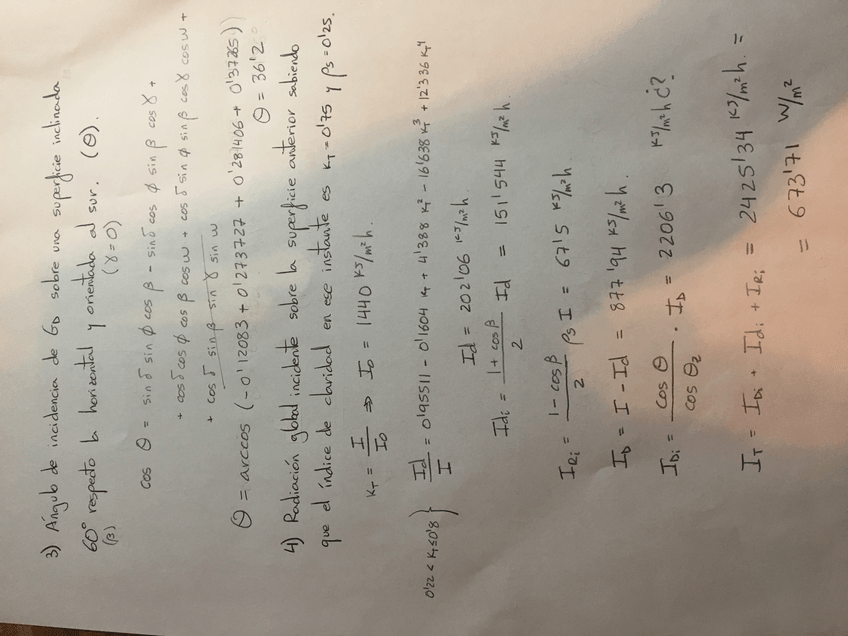 3) Ángulo de incidencia de G_D sobre una superficie inclinada
60° respecto la horizontal y orientada al sur. (Θ).
(β) (γ=0)
cos Θ = sin δ sin ϕ cos β - sin δ cos ϕ sin β cos γ +
+ cos δ cos ϕ cos β cos w + cos δ sin ϕ sin β cos γ cos w +
+ cos δ sin β sin γ sin w
Θ = arccos (-0'12083 + 0'273727 + 0'281406 + 0'37265))
Θ = 36'2
4) Radiación global incidente sobre la superficie anterior sabiendo
que el índice de claridad en ese instante es K_T = 0'75 y ρs = 0'25.
K_T = I/I_0 ⇒ I_0 = 1440 KJ/m²h.
0'22 < K_T ≤ 0'8 } Id/I = 0'95511 - 0'1604 K_T + 4'388 K_T² - 16'638 K_T³ + 12'336 K_T⁴
Id = 202'06 KJ/m²h.
Idi = (1 + cos β)/2 Id = 151'544 KJ/m²h.
I_Ri = (1 - cos β)/2 ρs I = 67'5 KJ/m²h.
I_D = I - Id = 877'94 KJ/m²h.
I_Di = cos Θ/cos Θz · I_D = 2206'3 KJ/m²h ¿?
I_T = I_Di + Idi + I_Ri = 2425'34 KJ/m²h. =
= 673'71 W/m²